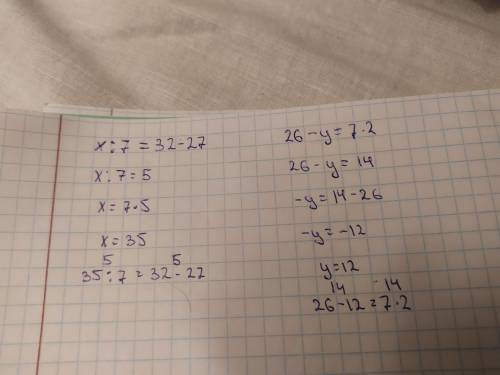 x:7=32-27
x:7=5
x=7·5
x=35
5 5
35:7=32-27
26-y=7·2
26-y=14
-y=14-26
-y=-12
y=12
14 14
26-12=7·2